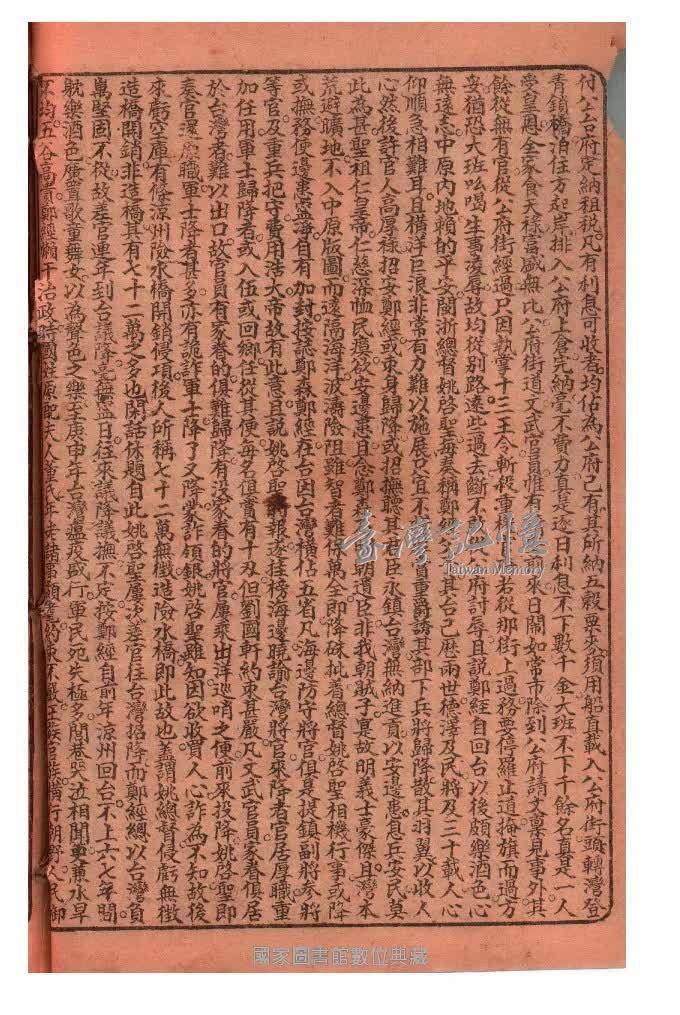 付公台府定納租稅凡有利息可收者均佔為公府己有其所納五穀栗麥須用船直載入公府街頭轉灣登
青鎖橋泊任方起岸排入公府上倉完納毫不費力真是逐日利息不下數千金大班不下千餘名真是一人
受皇恩全家食天祿富盛無比公府街道文武官員惟有 來日鬧如常市除到公府請文稟見事外其
餘從無官從公府街經過只因執掌十三王令斬殺重 若從那街上過務要停鑼止道掩旗而過方
妥猶恐大班吆喝生事凌辱故均從別路遶些過去斷不 府討辱且說鄭經自回台以後頗樂酒色心
無遠志中原內地賴的平安閩浙總督姚啓聖每奏稱鄭經 其台已歷兩世德澤及民將及三十載人心
仰順急相難耳且橫洋巨浪非常有力難以施展只宜不 賞重爵誘其部下兵將歸降散其羽翼以收人
心然後許官人高厚祿招安鄭經或束身歸降或招撫聽其 臣永鎮台灣無納進貢以安邊患息兵安民莫
此為甚聖祖仁皇帝仁慈深恤民瘼欲安邊患且念鄭森 明遺臣非我朝賊子寔故明義士豪傑且灣本
荒避曠地不入中原版圖而遠隔海洋波濤險阻雖智者難保萬全即降硃批着總督姚啓聖相機行事或降
或撫務使邊患盡海自有加封接誌鄭森鄭經在台因台灣橫佔五省凡海邊防守將官俱是提鎮副將參將
等官及重兵把守費用浩大帝故有此意且說姚啓聖 報遂挂榜海邊曉諭台灣將官來降者官居厚職重
加任用軍士歸降者或入伍或回鄉任從其便每名值賞有十刄但劉國軒約束甚嚴凡文武官員家眷俱居
於台灣者難以出口故官員有家眷的俱難歸降有沒家眷的將官屢乘出洋巡哨之便前來投降姚啓聖即
奏官 職軍士降者甚多亦有詭詐軍士降了又降業詐領銀姚啓聖雖知因欲收買人心詐為不知故後
來虧空庫有條涼州險水橋開銷侵項後人所稱七十二萬無徴造險水橋即此故也蓋謂姚總督侵虧無徴
造橋開銷非造橋其有七十二萬之多也閑話休題自此姚啓聖屢次差官往台灣招降而鄭經總以台灣負
萬堅固不從故差官連年到台議降毫無 日往來議降議撫不定按鄭經自前年涼州回台不上六七年間
躭樂酒色廣置歌童舞女以為聲色之樂至庚申年台灣瘟疫盛行軍民死失極多閭巷哭泣相聞 兼水旱
不均五谷高貴鄭經懶于治政時國 原配夫人董氏年老 約束不嚴 族官族橫行朝野人民仰